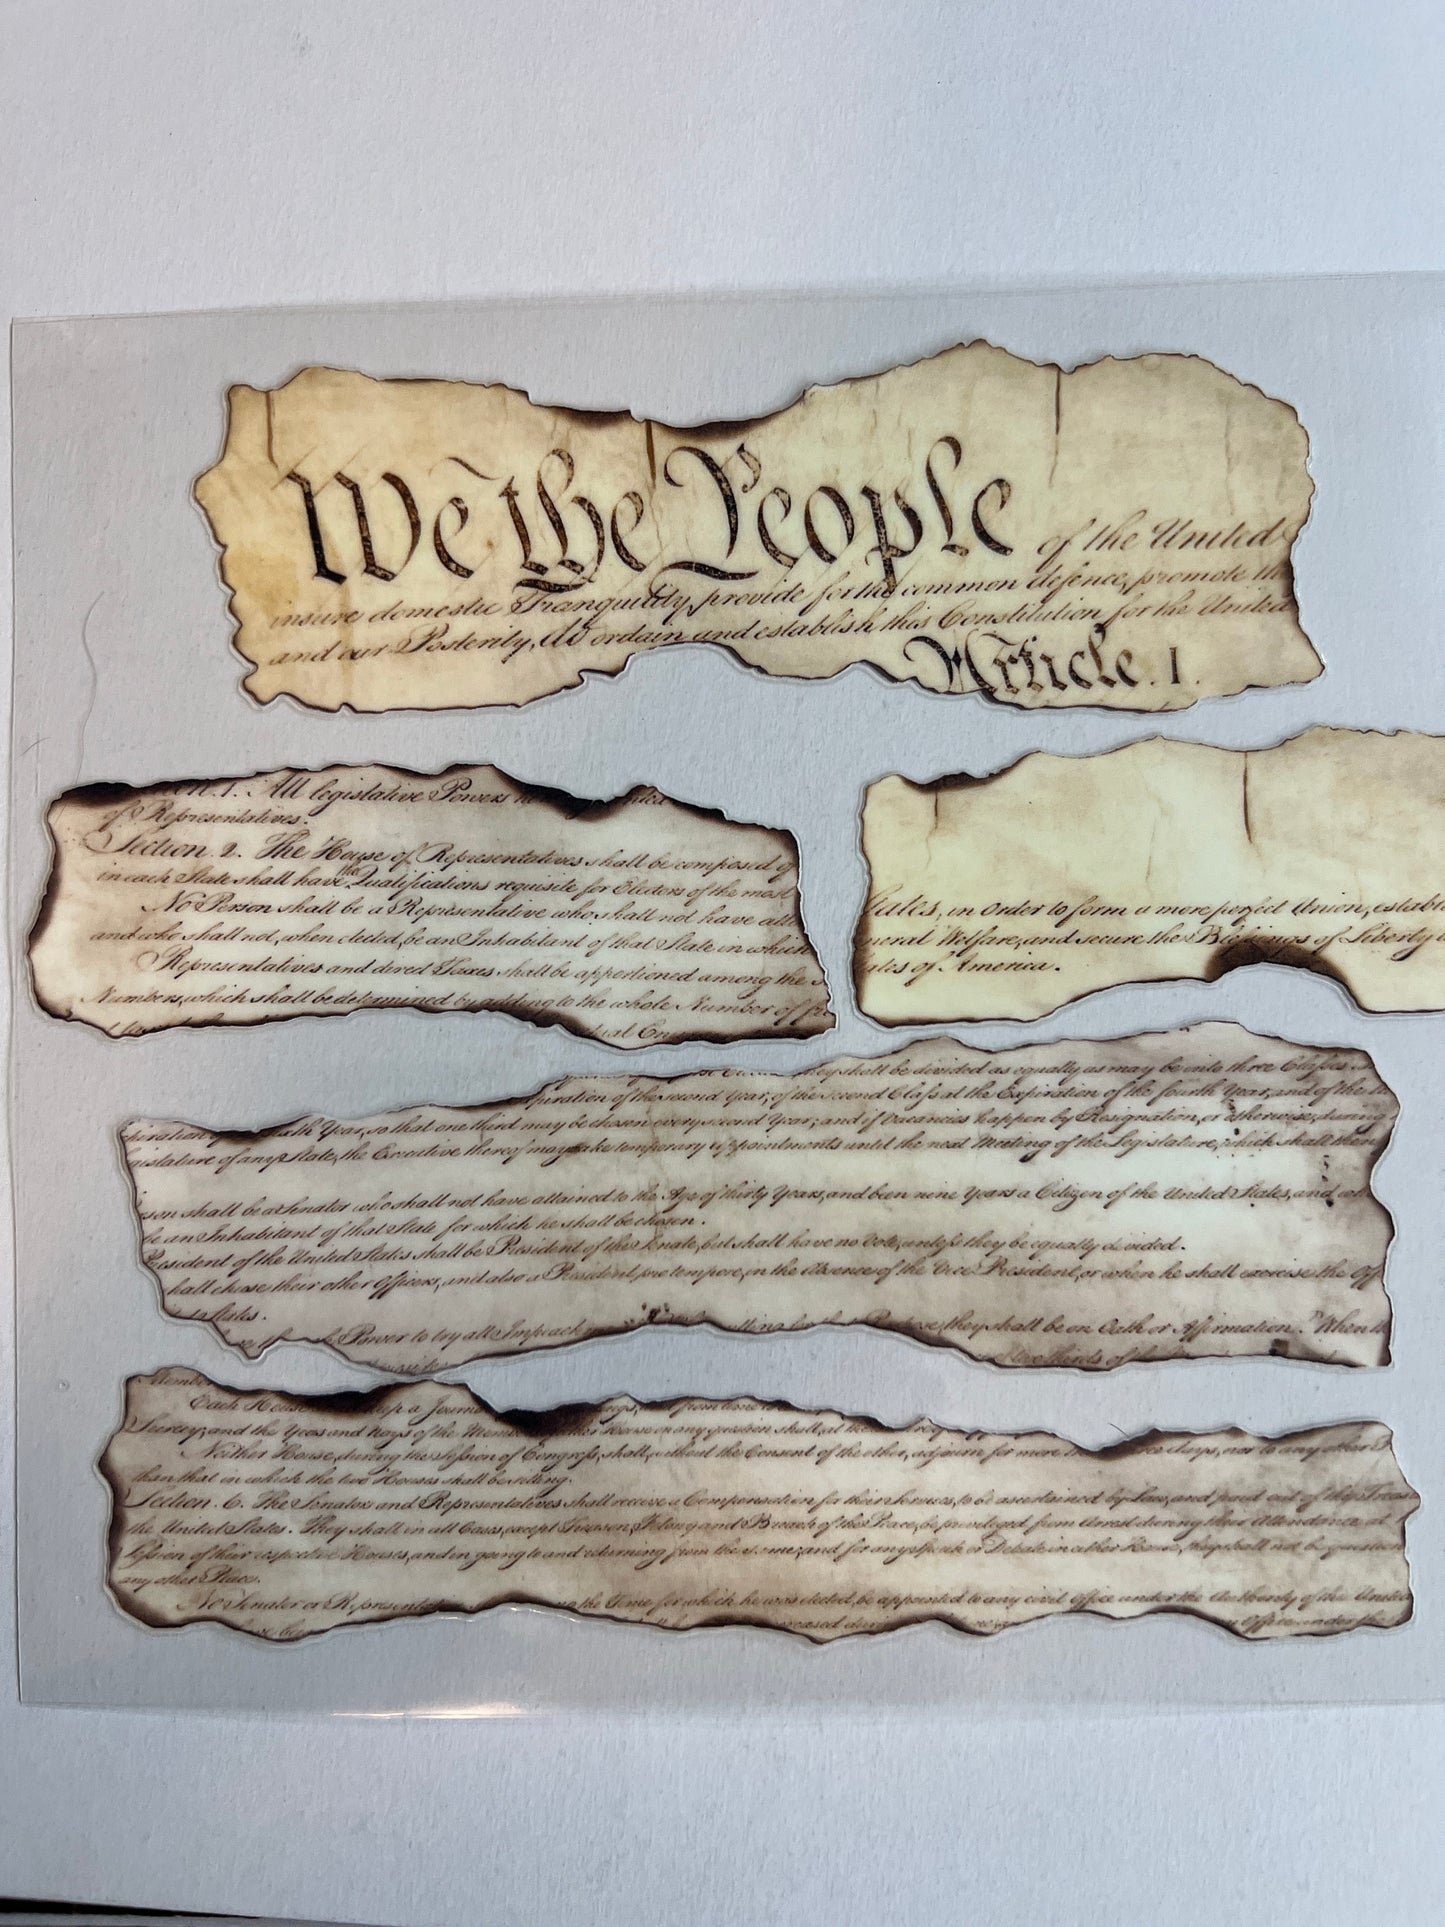 We the People of the United
insure domestic Tranquility, provide for the common defence, promote the
and our Posterity, do ordain and establish this Constitution for the United
Article. I.
1. All legislative Powers
of Representatives.
Section. 2. The House of Representatives shall be composed of
in each State shall have the Qualifications requisite for Electors of the most
No Person shall be a Representative who shall not have att
and who shall not, when elected, be an Inhabitant of that State in which
Representatives and direct Taxes shall be apportioned among the s
Numbers, which shall be determined by adding to the whole Number of
tates, in Order to form a more perfect Union, establ
neral Welfare, and secure the Blessings of Liberty
ates of America.
they shall be divided as equally as may be into three Classes.
piration of the second Year, of the second Class at the Expiration of the fourth Year, and of the
Year, so that one third may be chosen every second Year; and if Vacancies happen by Resignation, or otherwise, during
gislature of any State, the Executive thereof may make temporary Appointments until the next Meeting of the Legislature, which shall then
son shall be a Senator who shall not have attained to the Age of thirty Years, and been nine Years a Citizen of the United States, and
be an Inhabitant of that State for which he shall be chosen.
resident of the United States shall be President of the Senate, but shall have no Vote, unless they be equally divided.
hall chuse their other Officers, and also a President pro tempore, in the Absence of the Vice President, or when he shall exercise the Off
States.
Power to try all Impeach they shall be on Oath or Affirmation. When
two thirds of
Each House keep a Journ from time
Secrecy; and the Yeas and Nays of the Members House on any question shall, at the
Neither House, during the Session of Congress, shall, without the Consent of the other, adjourn for more days, nor to any other
than that in which the two Houses shall be sitting.
Section. 6. The Senators and Representatives shall receive a Compensation for their Services, to be ascertained by Law, and paid out of the Treas
the United States. They shall in all Cases, except Treason, Felony and Breach of the Peace, be privileged from Arrest during their Attendance at
Session of their respective Houses, and in going to and returning from the same; and for any Speech or Debate in either House, they shall not be question
any other Place.
No Senator or Representative the Time for which he was elected, be appointed to any civil Office under the Authority of the United
Office under the